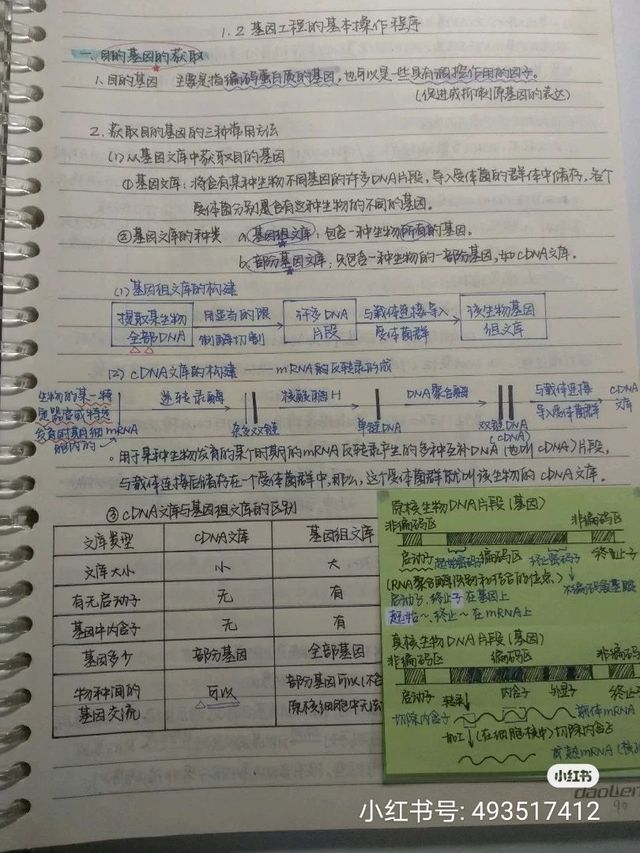 1.2 基因工程的基本操作程序
一、目的基因的获取
1. 目的基因 主要是指编码蛋白质的基因，也可以是一些具有调控作用的因子。
(促进或抑制原基因的表达)
2. 获取目的基因的三种常用方法
(1) 从基因文库中获取目的基因
① 基因文库：将含有某种生物不同基因的许多DNA片段，导入受体菌的群体中储存，各个
受体菌分别含有这种生物的不同的基因。
② 基因文库的种类 a. 基因组文库：包含一种生物所有的基因。
b. 部分基因文库：只包含一种生物的一部分基因，如cDNA文库。
(1) 基因组文库的构建
提取某生物全部DNA 用适当的限制酶切割 许多DNA片段 与载体连接导入受体菌群 该生物基因组文库
(2) cDNA文库的构建 —— mRNA的反转录形成
生物的某一特 mRNA 逆转录酶 杂交双链 核酸酶H 单链DNA DNA聚合酶 双链DNA (cDNA) 与载体连接 导入受体菌群 cDNA文库
定器官或特定
发育时期细
胞内的
。用于某种生物发育的某个时期的mRNA反转录产生的多种互补DNA(也叫cDNA)片段，
与载体连接后储存在一个受体菌群中，那么，这个受体菌群就叫该生物的cDNA文库。
③ cDNA文库与基因组文库的区别
文库类型 cDNA文库 基因组文库
文库大小 小 大
有无启动子 无 有
基因中内含子 无 有
基因多少 部分基因 全部基因
物种间的基因交流 可以 部分基因可以
原核细胞中无
原核生物DNA片段(基因)
非编码区 非编码区
启动子 起始密码子 编码区 终止密码子 终止子
(RNA聚合酶识别和结合的位点) 不编码氨基酸
启动子、终止子在基因上
起始~、终止~在mRNA上
真核生物DNA片段(基因)
非编码区 编码区 非编码区
启动子 转录 内含子 外显子 终止子
切除内含子 前体mRNA
加工 (在细胞核中) 切除内含子
成熟mRNA
小红书
小红书号: 493517412
90